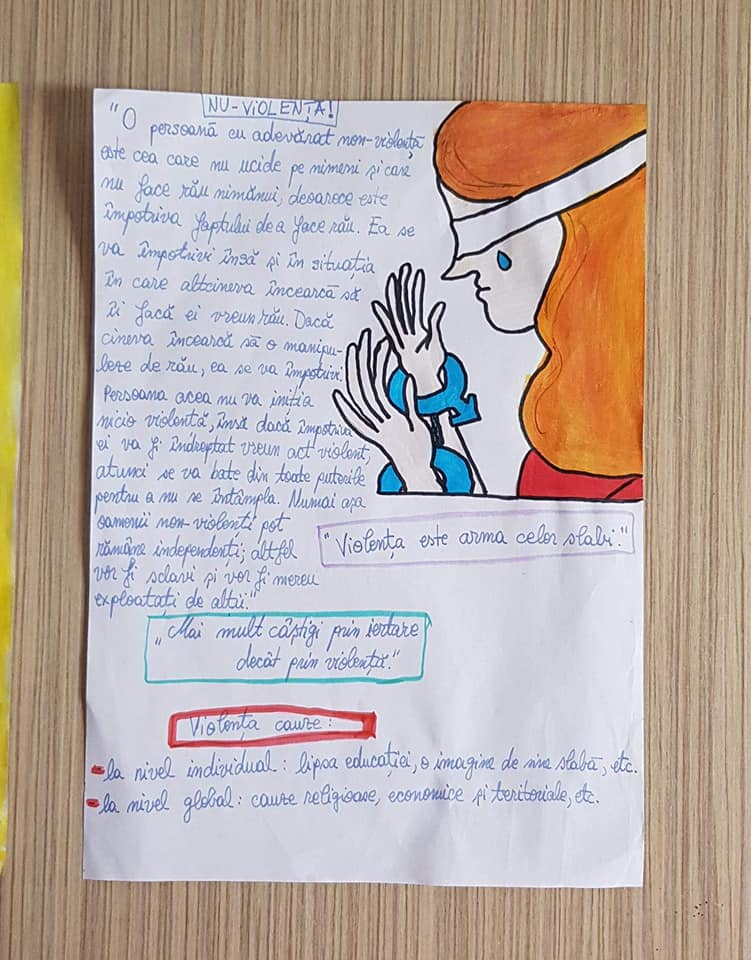 NU-VIOLENȚA!
"O persoană cu adevărat non-violentă
este cea care nu ucide pe nimeni și care
nu face rău nimănui, deoarece este
împotriva faptului de a face rău. Ea se
va împotrivi însă și în situația
în care altcineva încearcă să
îi facă ei vreun rău. Dacă
cineva încearcă să o manipu-
leze de rău, ea se va împotrivi.
Persoana acea nu va iniția
nicio violență, însă dacă împotriva
ei va fi îndreptat vreun act violent,
atunci se va bate din toate puterile
pentru a nu se întâmpla. Numai așa
oamenii non-violenti pot
rămâne independenți; altfel
vor fi sclavi și vor fi mereu
exploatați de alții."
"Violența este arma celor slabi."
"Mai mult câștigi prin iertare
decât prin violență."
Violența cauze:
-la nivel individual: lipsa educației, o imagine de sine slabă, etc.
-la nivel global: cauze religioase, economice și teritoriale, etc.